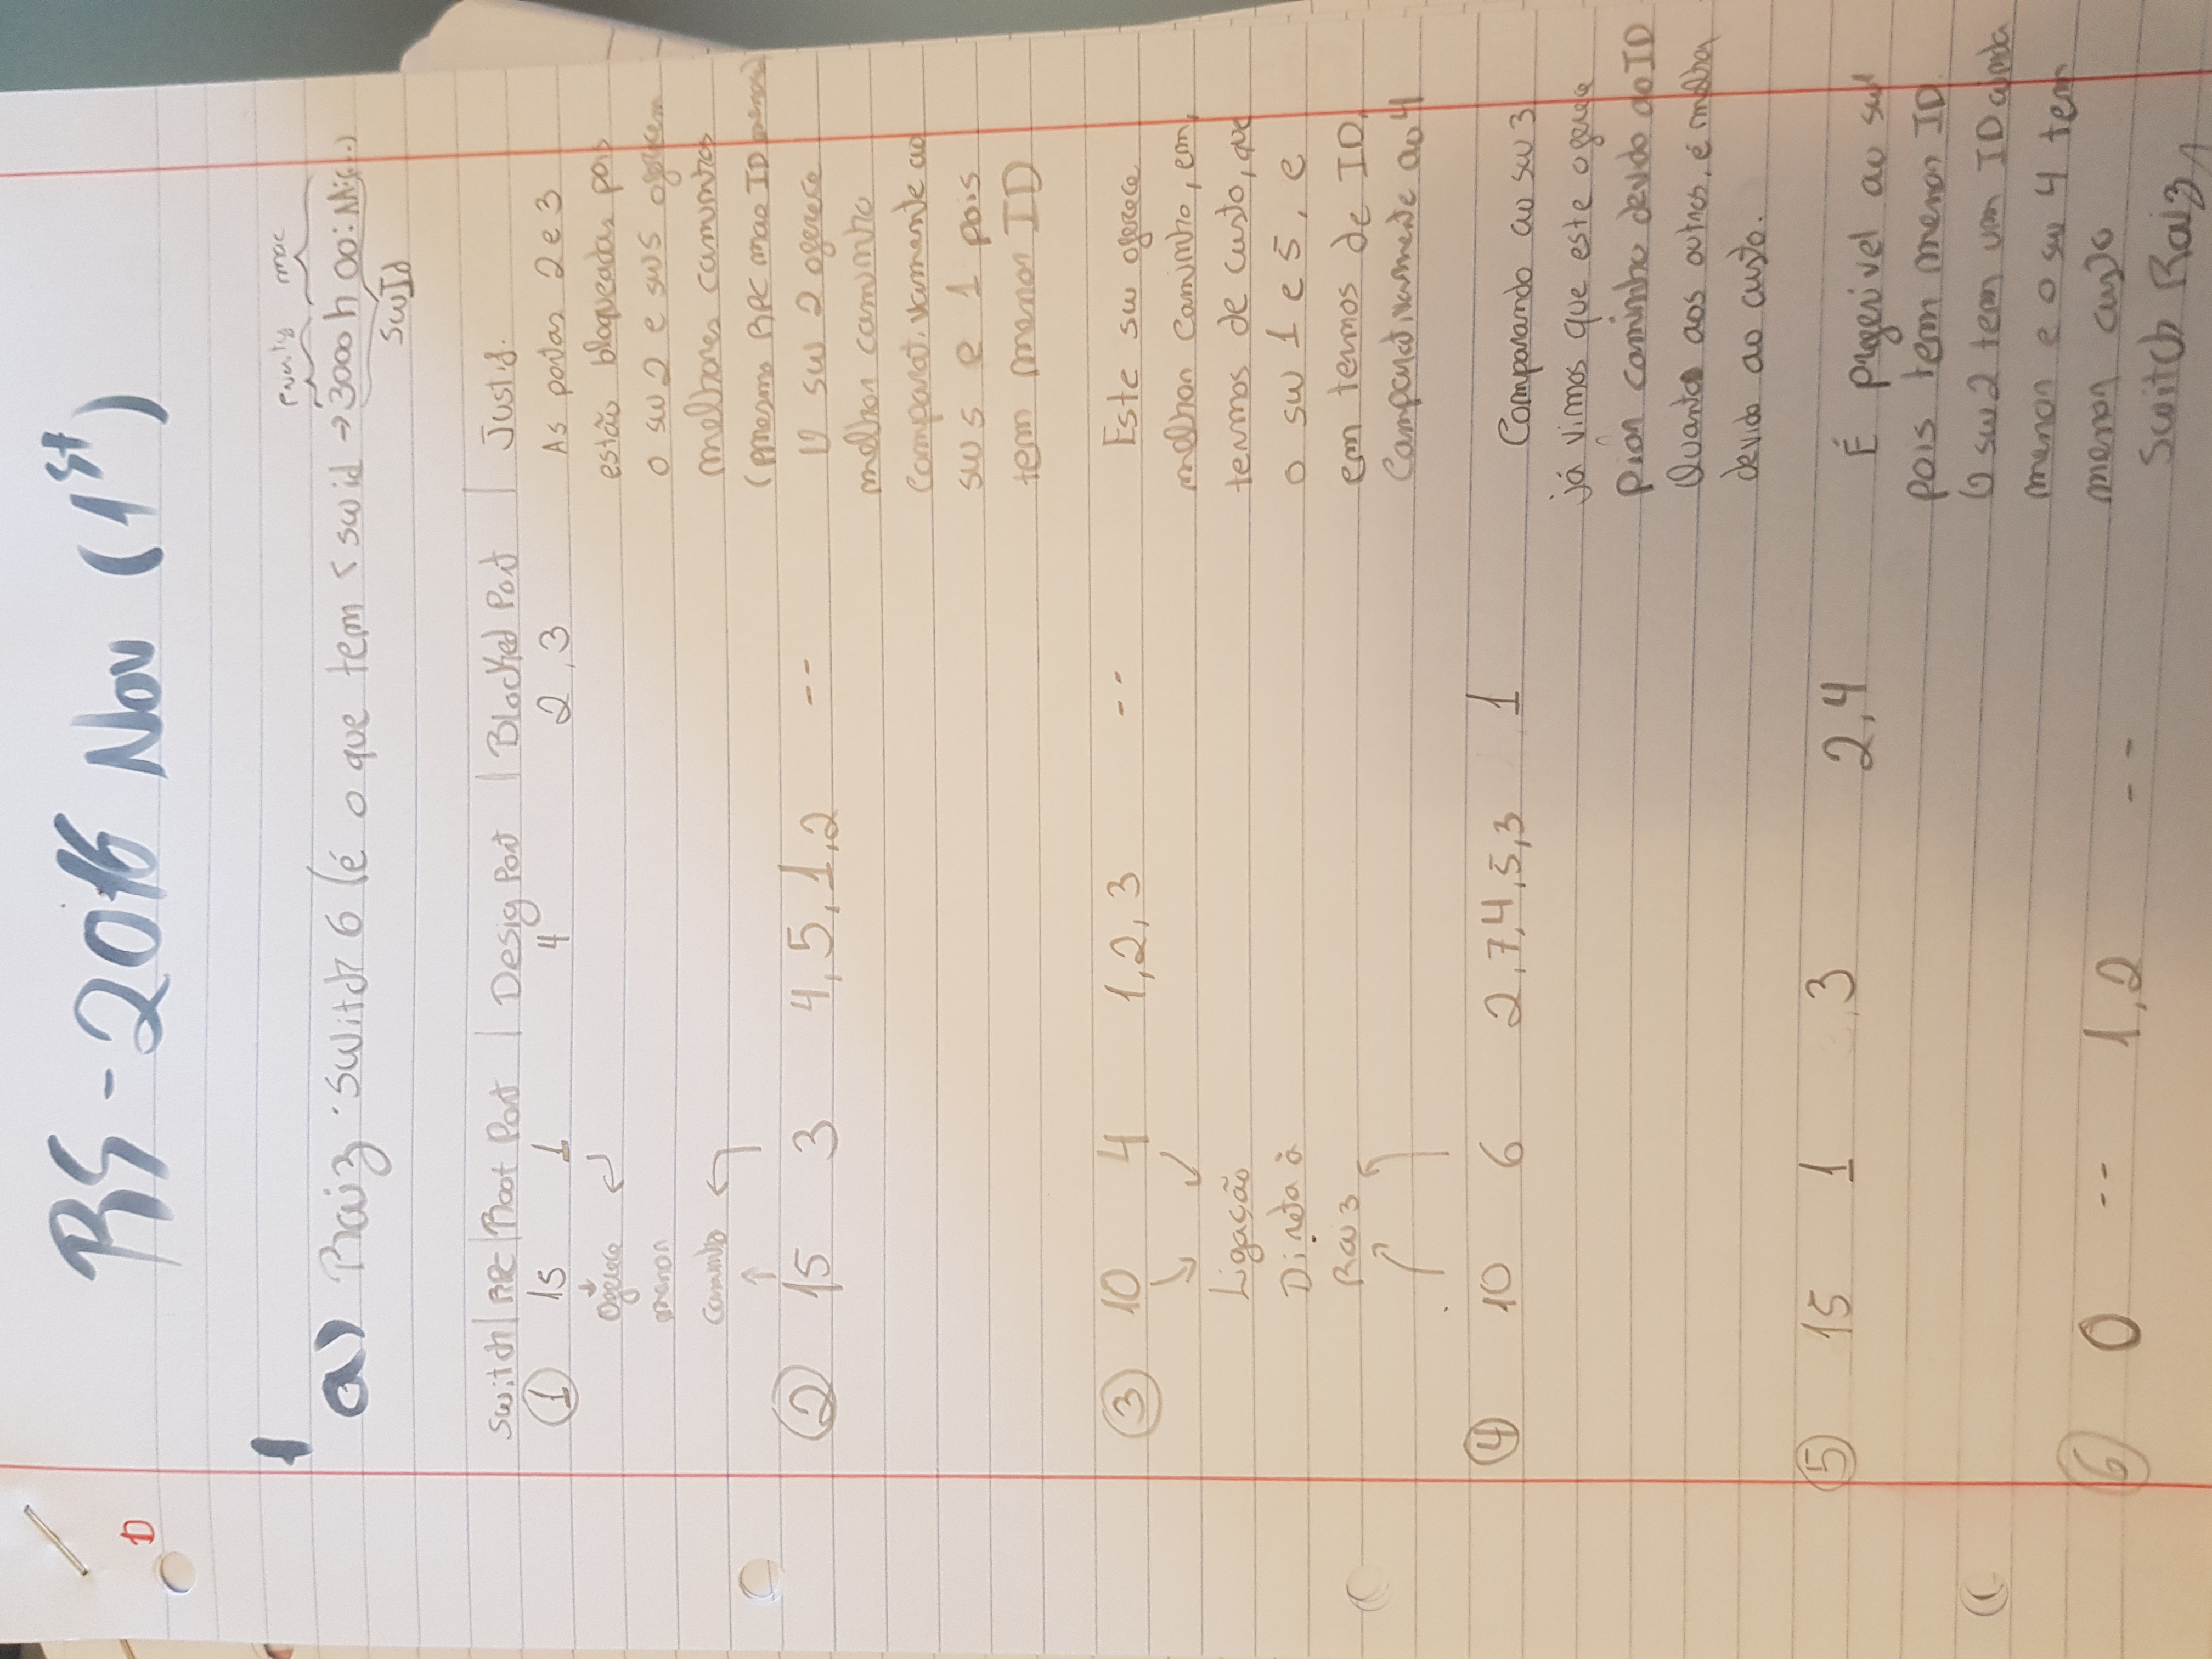 D
RS - 2016 Nov (1st)
1
mac
a) Raiz : Switch 6 (é o que tem < swid → 3000h 00:
SwId
Switch | RPC | Root Port | Desig Port | Blocked Port | Justif.
1 15 1 4 2, 3 As portas 2 e 3
Oferece estão bloqueadas pois
menor o sw 2 e sw5 oferecem
Caminho melhores caminhos
(mesmo RPC mas ID menor)
2 15 3 4, 5, 1, 2 -- O sw 2 oferece
melhor caminho
Comparativamente ao
sw 5 e 1 pois
tem menor ID
3 10 4 1, 2, 3 -- Este sw oferece
melhor caminho, em
Ligação termos de custo, que
Direta à o sw 1 e 5, e
Raiz em termos de ID,
Comparativamente ao 4
4 10 6 2, 7, 4, 5, 3 1 Comparando ao sw 3
já vimos que este oferece
pior caminho devido ao ID
Quanto aos outros, é melhor
devido ao custo.
5 15 1 3 2, 4 É preferivel ao sw1
pois tem menor ID.
O sw 2 tem um ID ainda
menor e o sw 4 tem
menor custo
6 0 -- 1, 2 -- Switch Raiz